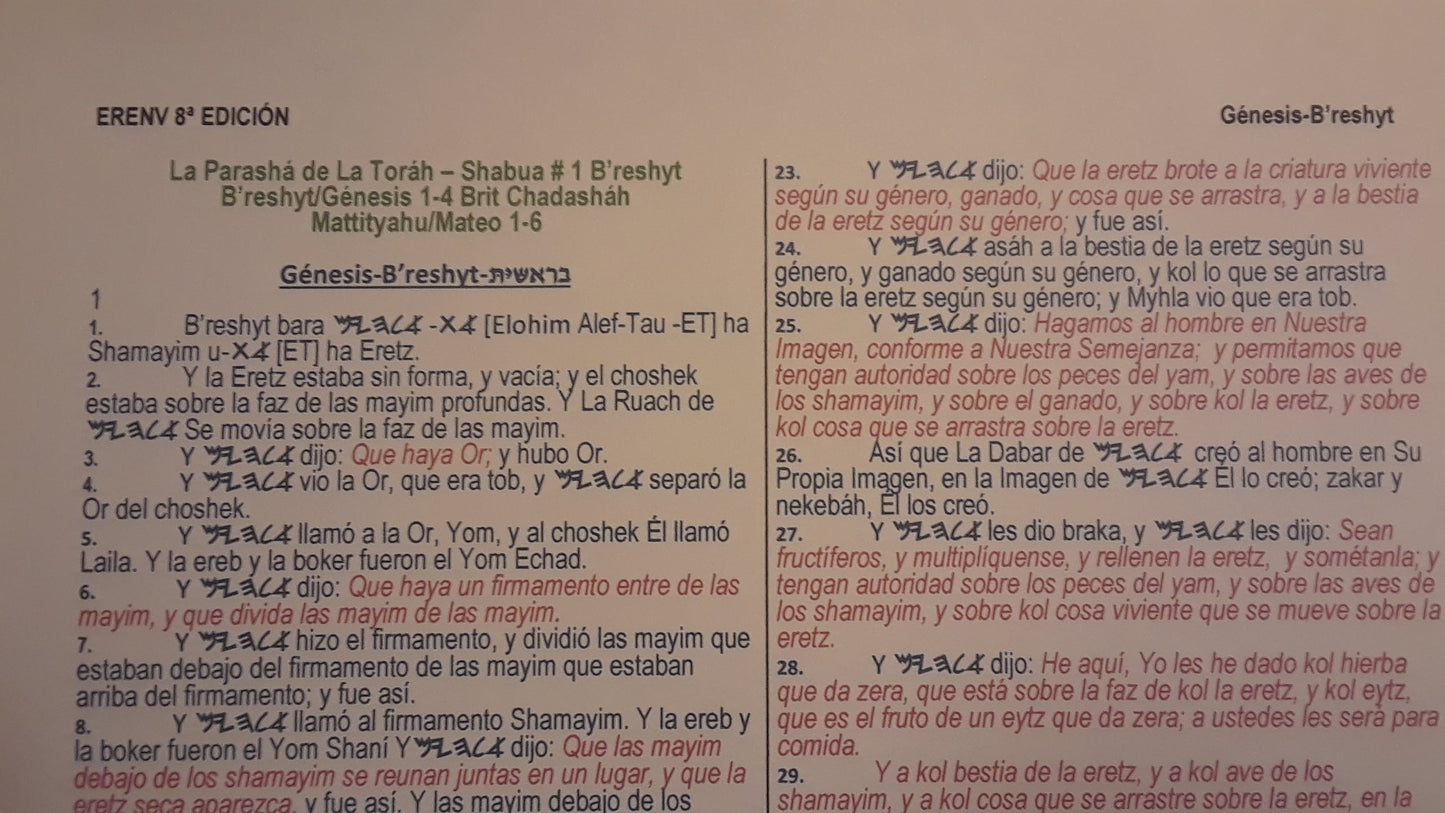 ERENV 8ª EDICIÓN
Génesis-B’reshyt
La Parashá de La Toráh – Shabua # 1 B’reshyt
B’reshyt/Génesis 1-4 Brit Chadasháh
Mattityahu/Mateo 1-6
Génesis-B’reshyt-בראשית
1
1. B’reshyt bara 𐤀𐤋𐤄𐤉𐤌 -𐤀𐤕 [Elohim Alef-Tau -ET] ha
Shamayim u-𐤀𐤕 [ET] ha Eretz.
2. Y la Eretz estaba sin forma, y vacía; y el choshek
estaba sobre la faz de las mayim profundas. Y La Ruach de
𐤀𐤋𐤄𐤉𐤌 Se movía sobre la faz de las mayim.
3. Y 𐤀𐤋𐤄𐤉𐤌 dijo: Que haya Or; y hubo Or.
4. Y 𐤀𐤋𐤄𐤉𐤌 vio la Or, que era tob, y 𐤀𐤋𐤄𐤉𐤌 separó la
Or del choshek.
5. Y 𐤀𐤋𐤄𐤉𐤌 llamó a la Or, Yom, y al choshek Él llamó
Laila. Y la ereb y la boker fueron el Yom Echad.
6. Y 𐤀𐤋𐤄𐤉𐤌 dijo: Que haya un firmamento entre de las
mayim, y que divida las mayim de las mayim.
7. Y 𐤀𐤋𐤄𐤉𐤌 hizo el firmamento, y dividió las mayim que
estaban debajo del firmamento de las mayim que estaban
arriba del firmamento; y fue así.
8. Y 𐤀𐤋𐤄𐤉𐤌 llamó al firmamento Shamayim. Y la ereb y
la boker fueron el Yom Shaní Y 𐤀𐤋𐤄𐤉𐤌 dijo: Que las mayim
debajo de los shamayim se reunan juntas en un lugar, y que la
eretz seca aparezca, y fue así. Y las mayim debajo de los
23. Y 𐤀𐤋𐤄𐤉𐤌 dijo: Que la eretz brote a la criatura viviente
según su género, ganado, y cosa que se arrastra, y a la bestia
de la eretz según su género; y fue así.
24. Y 𐤀𐤋𐤄𐤉𐤌 asáh a la bestia de la eretz según su
género, y ganado según su género, y kol lo que se arrastra
sobre la eretz según su género; y Myhla vio que era tob.
25. Y 𐤀𐤋𐤄𐤉𐤌 dijo: Hagamos al hombre en Nuestra
Imagen, conforme a Nuestra Semejanza; y permitamos que
tengan autoridad sobre los peces del yam, y sobre las aves de
los shamayim, y sobre el ganado, y sobre kol la eretz, y sobre
kol cosa que se arrastra sobre la eretz.
26. Así que La Dabar de 𐤀𐤋𐤄𐤉𐤌 creó al hombre en Su
Propia Imagen, en la Imagen de 𐤀𐤋𐤄𐤉𐤌 Él lo creó; zakar y
nekebáh, Él los creó.
27. Y 𐤀𐤋𐤄𐤉𐤌 les dio braka, y 𐤀𐤋𐤄𐤉𐤌 les dijo: Sean
fructíferos, y multiplíquense, y rellenen la eretz, y sométanla; y
tengan autoridad sobre los peces del yam, y sobre las aves de
los shamayim, y sobre kol cosa viviente que se mueve sobre la
eretz.
28. Y 𐤀𐤋𐤄𐤉𐤌 dijo: He aquí, Yo les he dado kol hierba
que da zera, que está sobre la faz de kol la eretz, y kol eytz,
que es el fruto de un eytz que da zera; a ustedes les será para
comida.
29. Y a kol bestia de la eretz, y a kol ave de los
shamayim, y a kol cosa que se arrastre sobre la eretz, en la